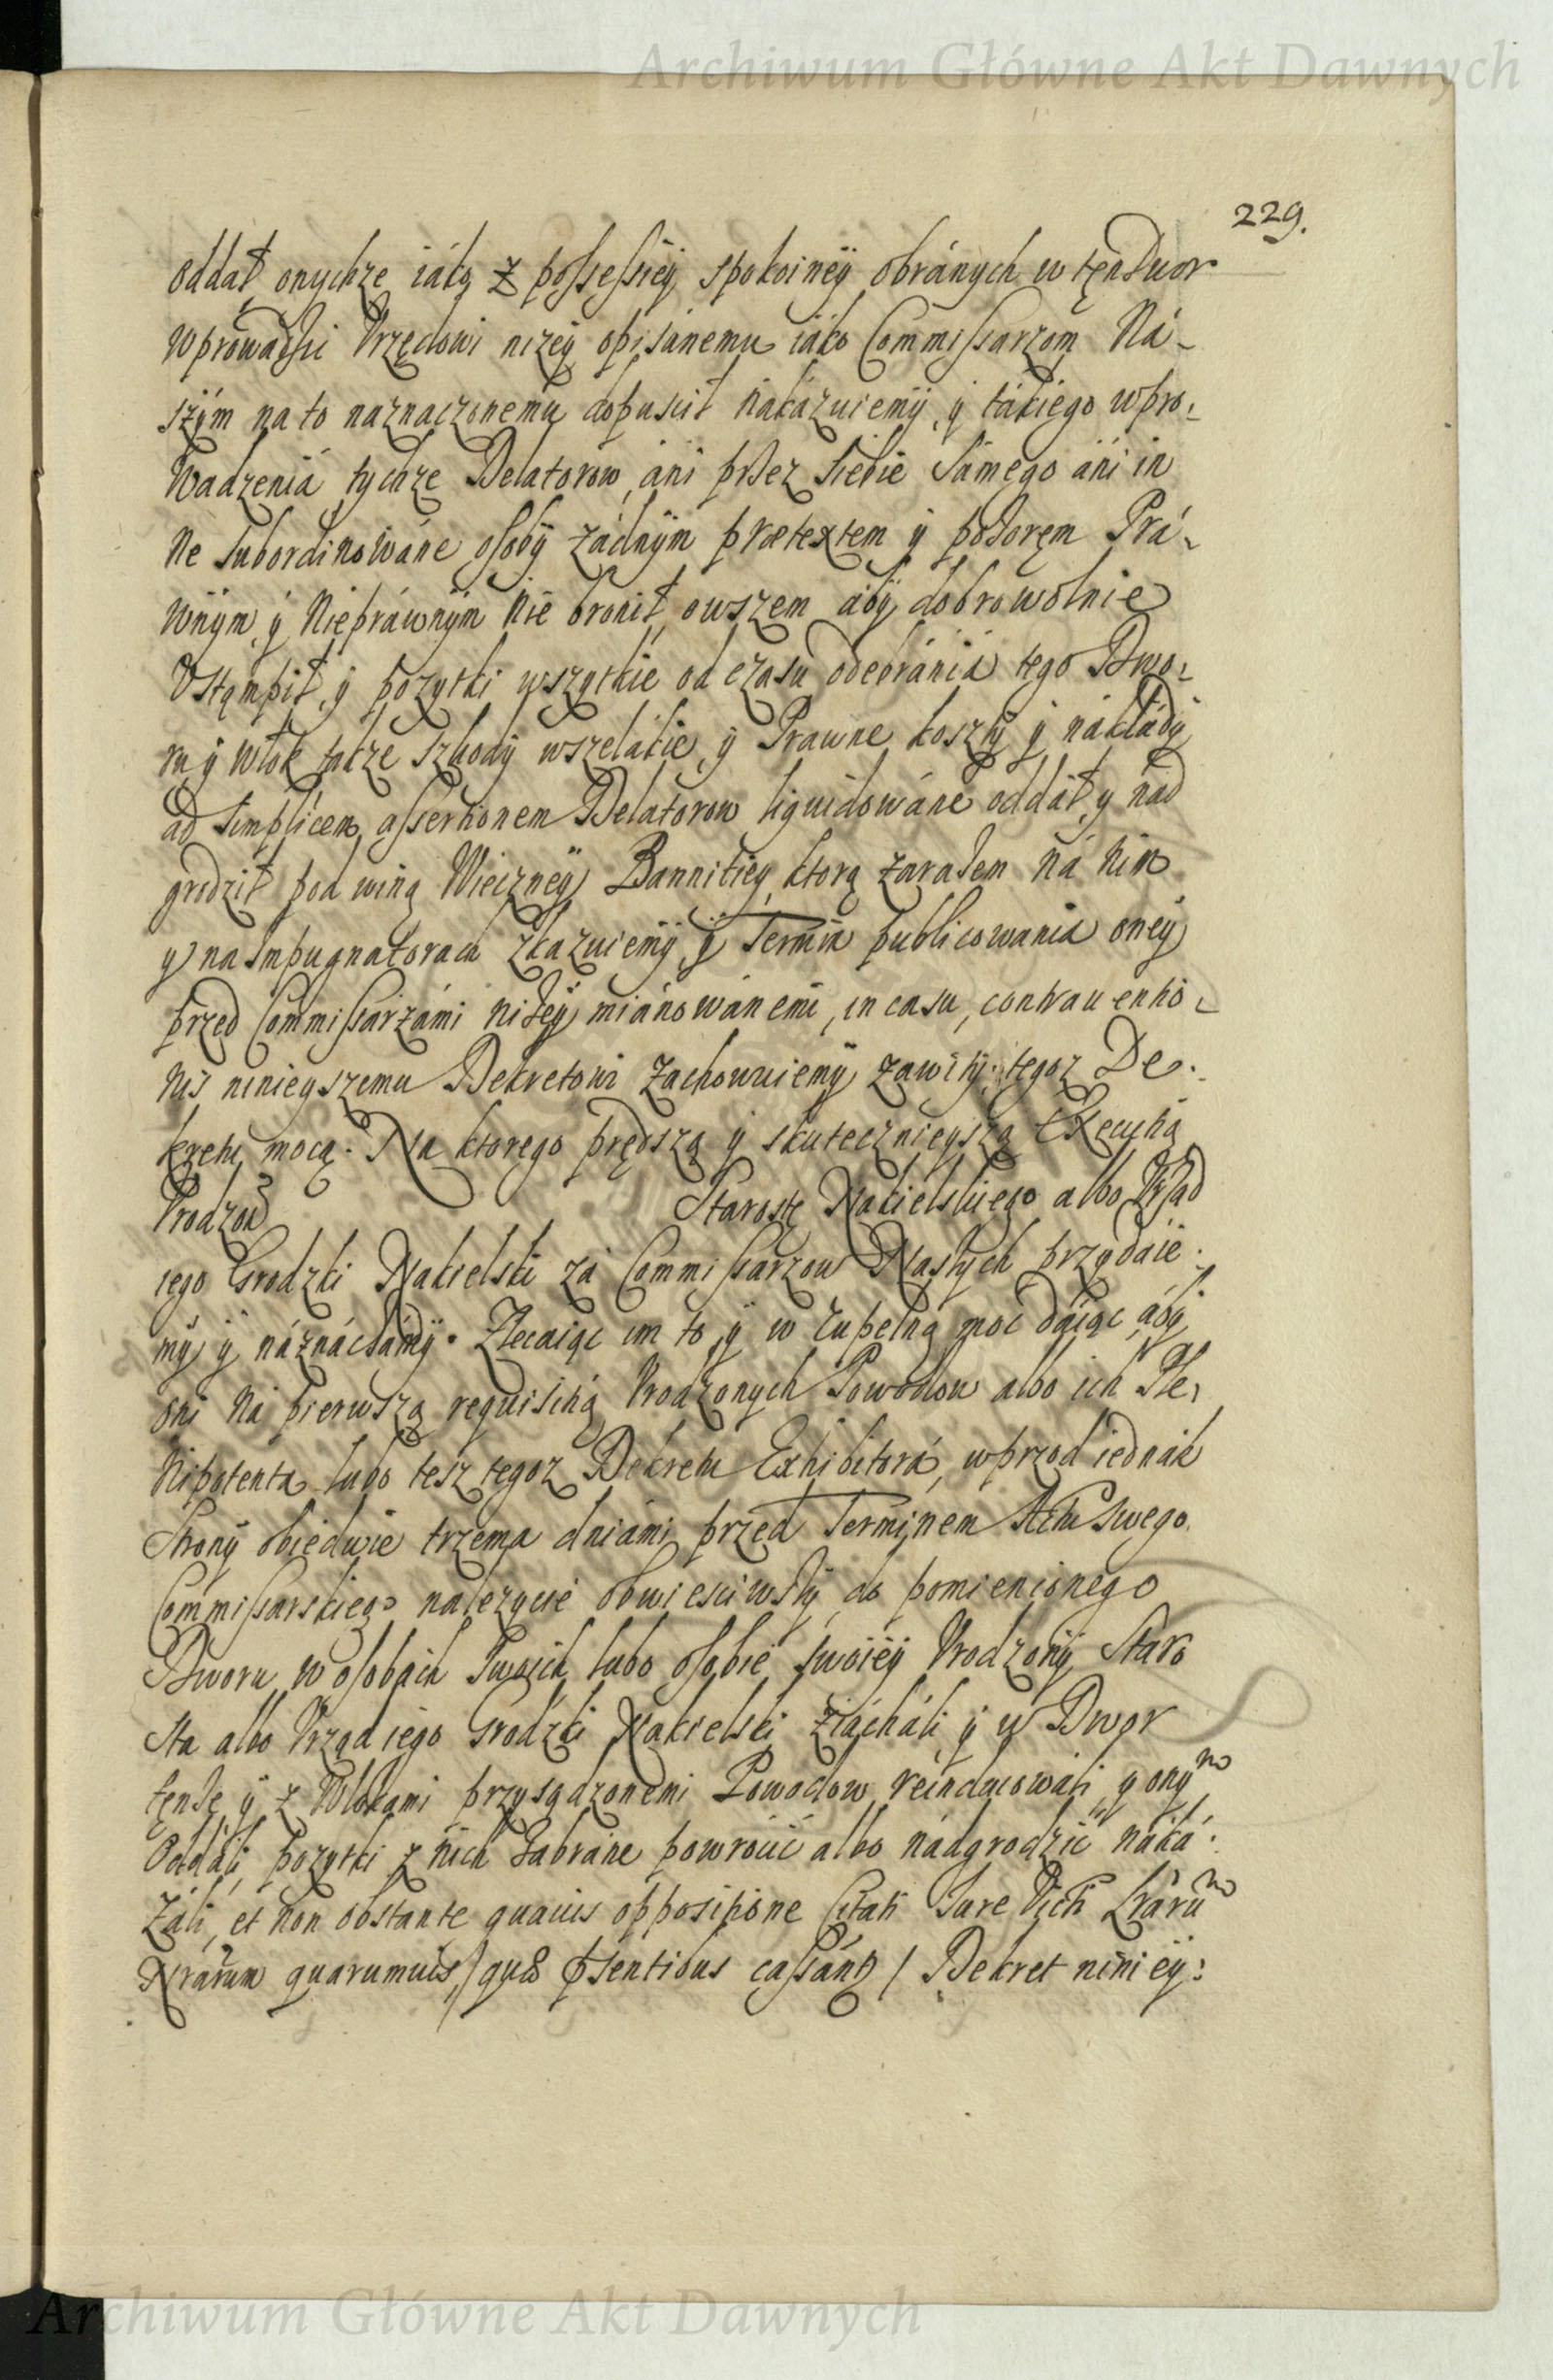 Archiwum Główne Akt Dawnych
229.
oddał onychze iáko z possessiey spokoiney obránych w tęn Dwor
wprowádzic Vrzędowi nizey opisánemu iáko Commissarzom Ná-
szym na to naznaczonemu dopuscił nakázuiemy, y tákiego wpro-
wadzeniá tychze Delatorow, áni przez siebie sámego áni in
ne subordinowáne osoby zádnym praetextem y pozoręm Prá-
wnym y Nieprawnym nie bronił, owszem áby dobrowolnie
Vstąmpił, y pozytki wszytkie od czasu odebrániá tego Dwo-
ru y włok tákze szkody wszelákie y Prawne koszty y nakłády
ad simplicem assertionem Delatorow liquidowáne oddał, y nád
grodził pod winą Wieczney Bannitiey, ktorą zarazem ná nim
y na Impugnatorach zkazuiemy, y Termin publicowania oney
przed Commissarzámi nizey miánowánemi, in casu contrauentio-
nis ninieyszemu Dekretowi zachowuiemy zawity, tegoz De-
kretu mocą. Na ktorego prędszą y skutecznieyszą Exęcutią
Vrodzon Starostę Nakielskiego albo Vrząd
iego Grodzki Nakielski zá Commissarzow Naszych przydáie-
my y náznáczámy. Zlecáiąc im to, y w zupełną moc dáiąc áby
oni ná pierwszą requisitią Vrodzonych Powodow albo ich Ple-
nipotenta lubo tesz tegoz Dekretu Exhibitorá, wprzod iednák
Strony obiedwie trzema dniámi przed Terminem Actu swego
Commissarskiego nalezycie obwiesciwszy, do pomienionego
Dworu w osobách swoich lubo osobie swoiey Vrodzony Staro
sta albo Vrząd iego Grodzki Nakielski ziácháli y w Dwor
tęnze y z Włokami przysądzonemi Powodow reinducowáli, y ony<sup>m</sup>
Oddáli, pozytki z nich zabráne powroćić albo nádgrodzić náká-
záli, et non obstante quauis oppositione Citati Iure Victi Lrarū<sup>m</sup>
Nrarum quarumuis, /quas pſentibus caſsanţ/ Dekret niniey:
Archiwum Główne Akt Dawnych